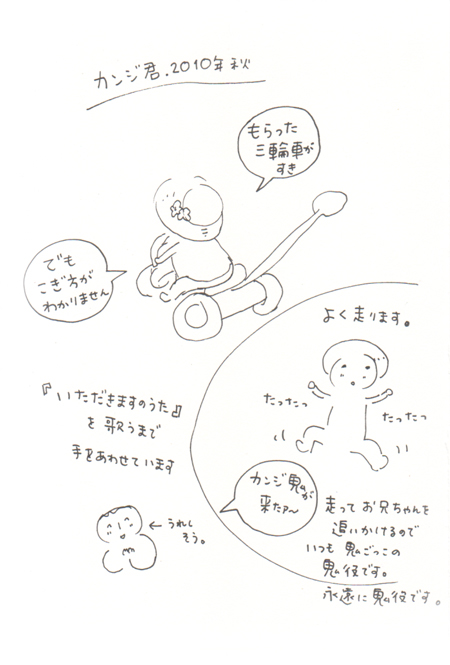 カンジ君.2010年秋
もらった
三輪車が
すき
でも
こぎ方が
わかりません
よく走ります。
たったったっ
たったっ
『いただきますのうた』
を歌うまで
手をあわせています
←うれし
そう。
カンジ鬼が
来たァ〜
走ってお兄ちゃんを
追いかけるので
いつも鬼ごっこの
鬼役です。
永遠に鬼役です。